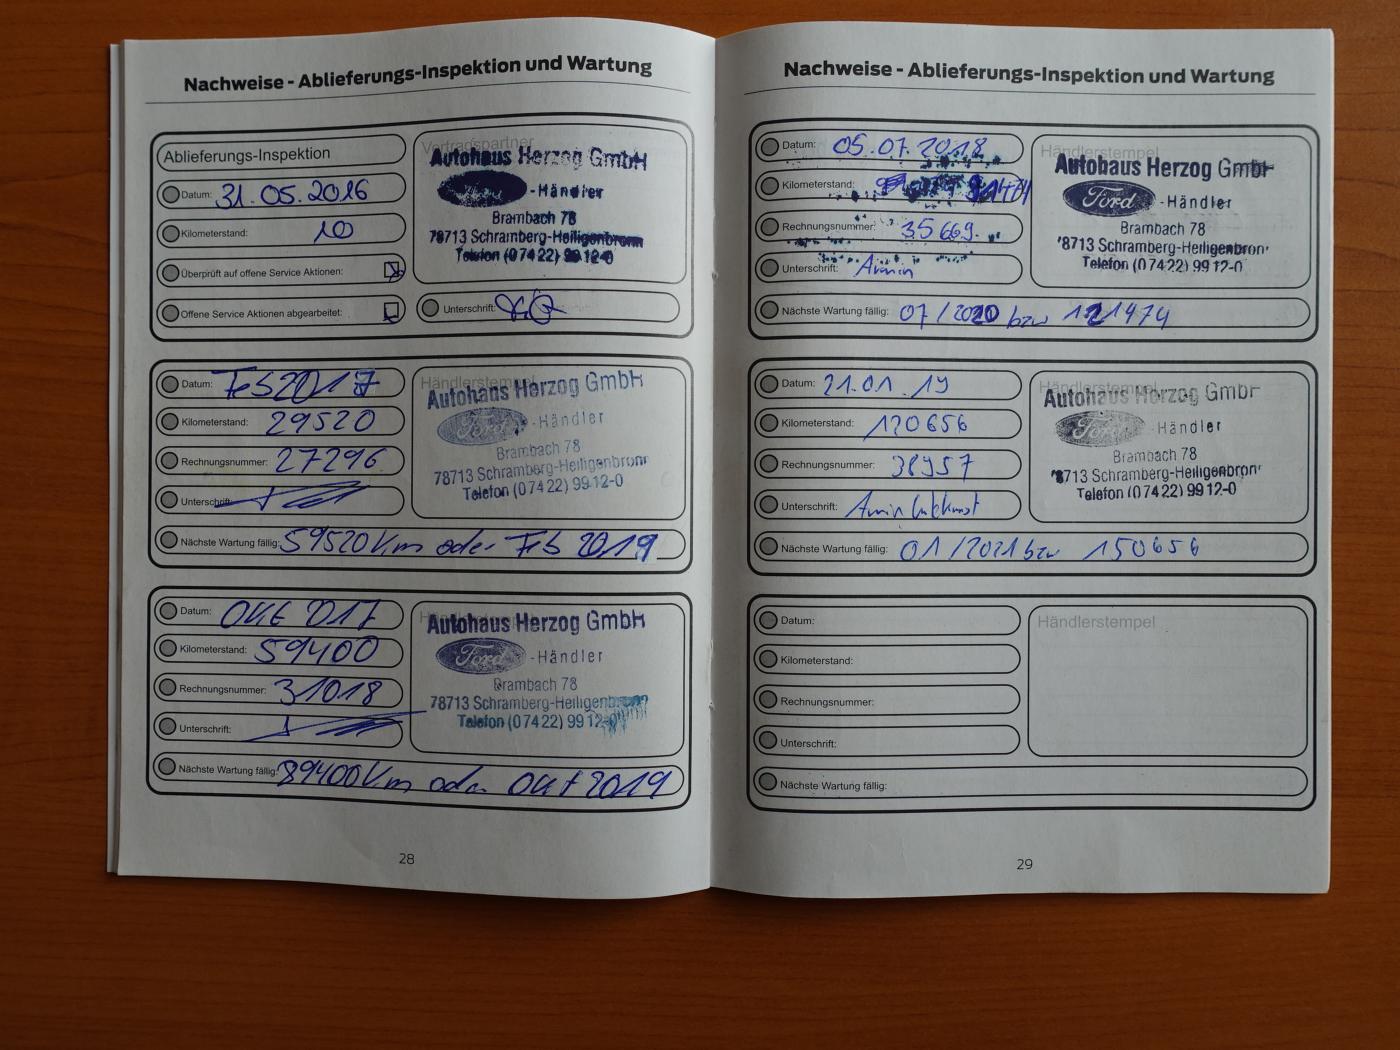 Nachweise - Ablieferungs-Inspektion und Wartung
Ablieferungs-Inspektion
Datum: 31.05.2016
Kilometerstand: 10
Überprüft auf offene Service Aktionen:
Offene Service Aktionen abgearbeitet:
Vertragspartner
Autohaus Herzog GmbH
Ford -Händler
Brambach 78
78713 Schramberg-Heiligenbronn
Telefon (07422) 99 12-0
Unterschrift:
Datum: Feb 2017
Kilometerstand: 29520
Rechnungsnummer: 27296
Unterschrift:
Händlerstempel
Autohaus Herzog GmbH
Ford -Händler
Brambach 78
78713 Schramberg-Heiligenbronn
Telefon (07422) 99 12-0
Nächste Wartung fällig: 59520 Km oder Feb 2019
Datum: Okt 2017
Kilometerstand: 59400
Rechnungsnummer: 31018
Unterschrift:
Händlerstempel
Autohaus Herzog GmbH
Ford -Händler
Brambach 78
78713 Schramberg-Heiligenbronn
Telefon (07422) 99 12-0
Nächste Wartung fällig: 89400 Km oder Okt 2019
28
Nachweise - Ablieferungs-Inspektion und Wartung
Datum: 05.07.2018
Kilometerstand: 91474
Rechnungsnummer: 35669
Unterschrift: Armin
Händlerstempel
Autohaus Herzog GmbH
Ford -Händler
Brambach 78
78713 Schramberg-Heiligenbronn
Telefon (07422) 99 12-0
Nächste Wartung fällig: 07/2020 bzw 121474
Datum: 21.01.19
Kilometerstand: 120656
Rechnungsnummer: 38957
Unterschrift: Armin
Händlerstempel
Autohaus Herzog GmbH
Ford -Händler
Brambach 78
78713 Schramberg-Heiligenbronn
Telefon (07422) 99 12-0
Nächste Wartung fällig: 01/2021 bzw 150656
Datum:
Kilometerstand:
Rechnungsnummer:
Unterschrift:
Händlerstempel
Nächste Wartung fällig:
29